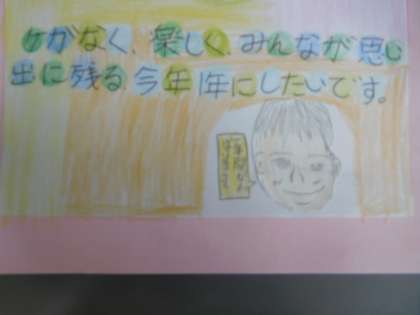 ケがなく、楽しく、みんなが思い
出に残る今年1年にしたいです。